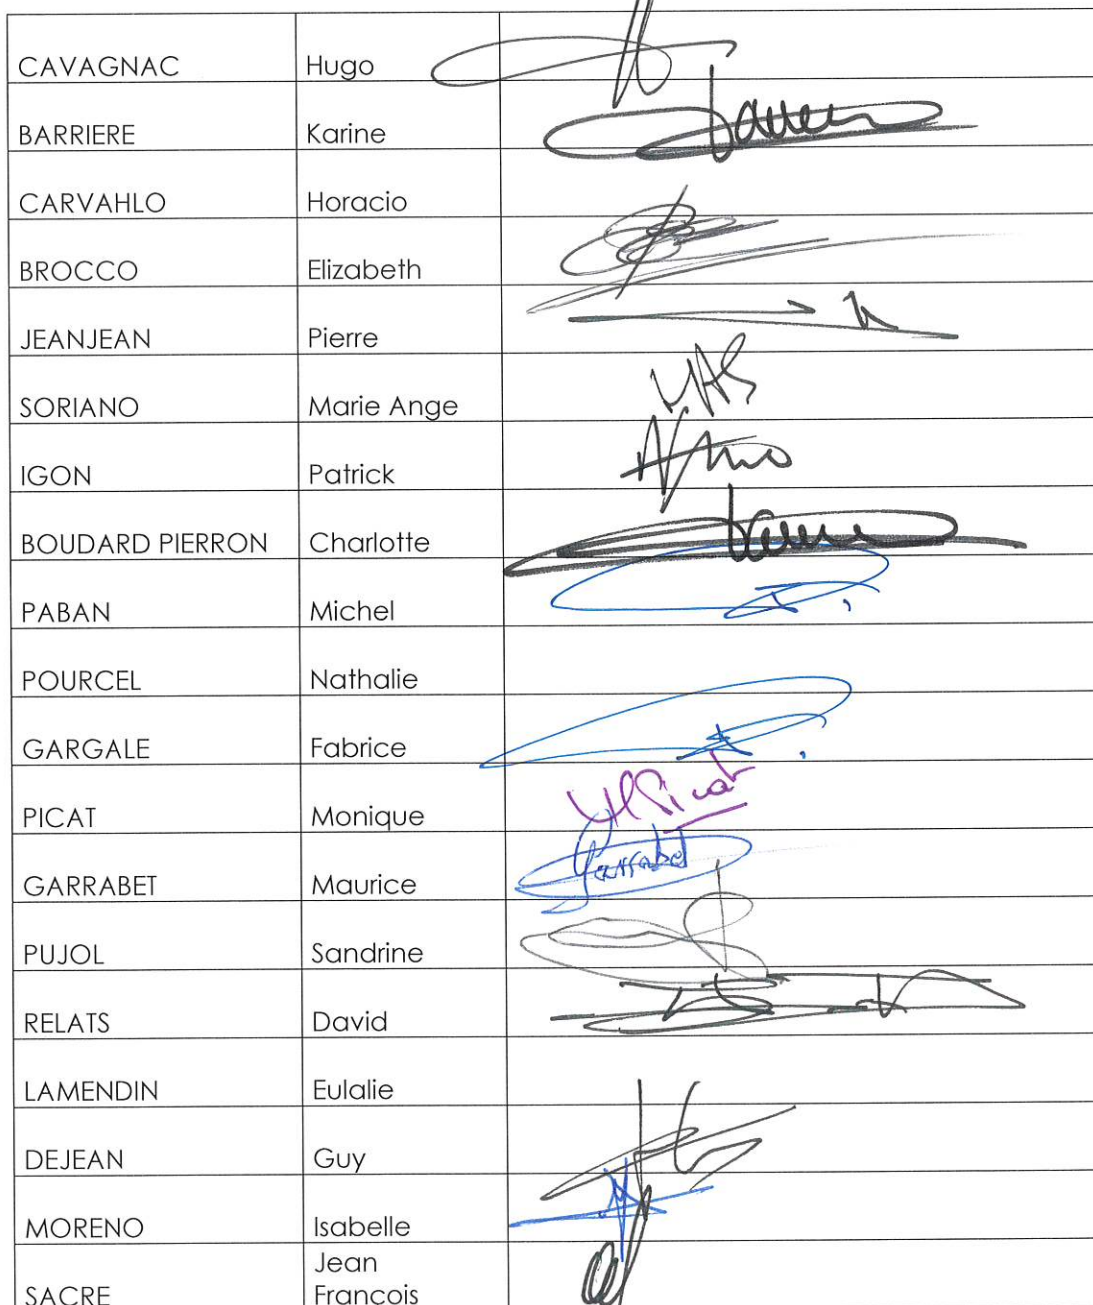 CAVAGNAC Hugo
BARRIERE Karine
CARVAHLO Horacio
BROCCO Elizabeth
JEANJEAN Pierre
SORIANO Marie Ange
IGON Patrick
BOUDARD PIERRON Charlotte
PABAN Michel
POURCEL Nathalie
GARGALE Fabrice
PICAT Monique Picat
GARRABET Maurice Garrabet
PUJOL Sandrine
RELATS David
LAMENDIN Eulalie
DEJEAN Guy
MORENO Isabelle
Jean
SACRE Francois